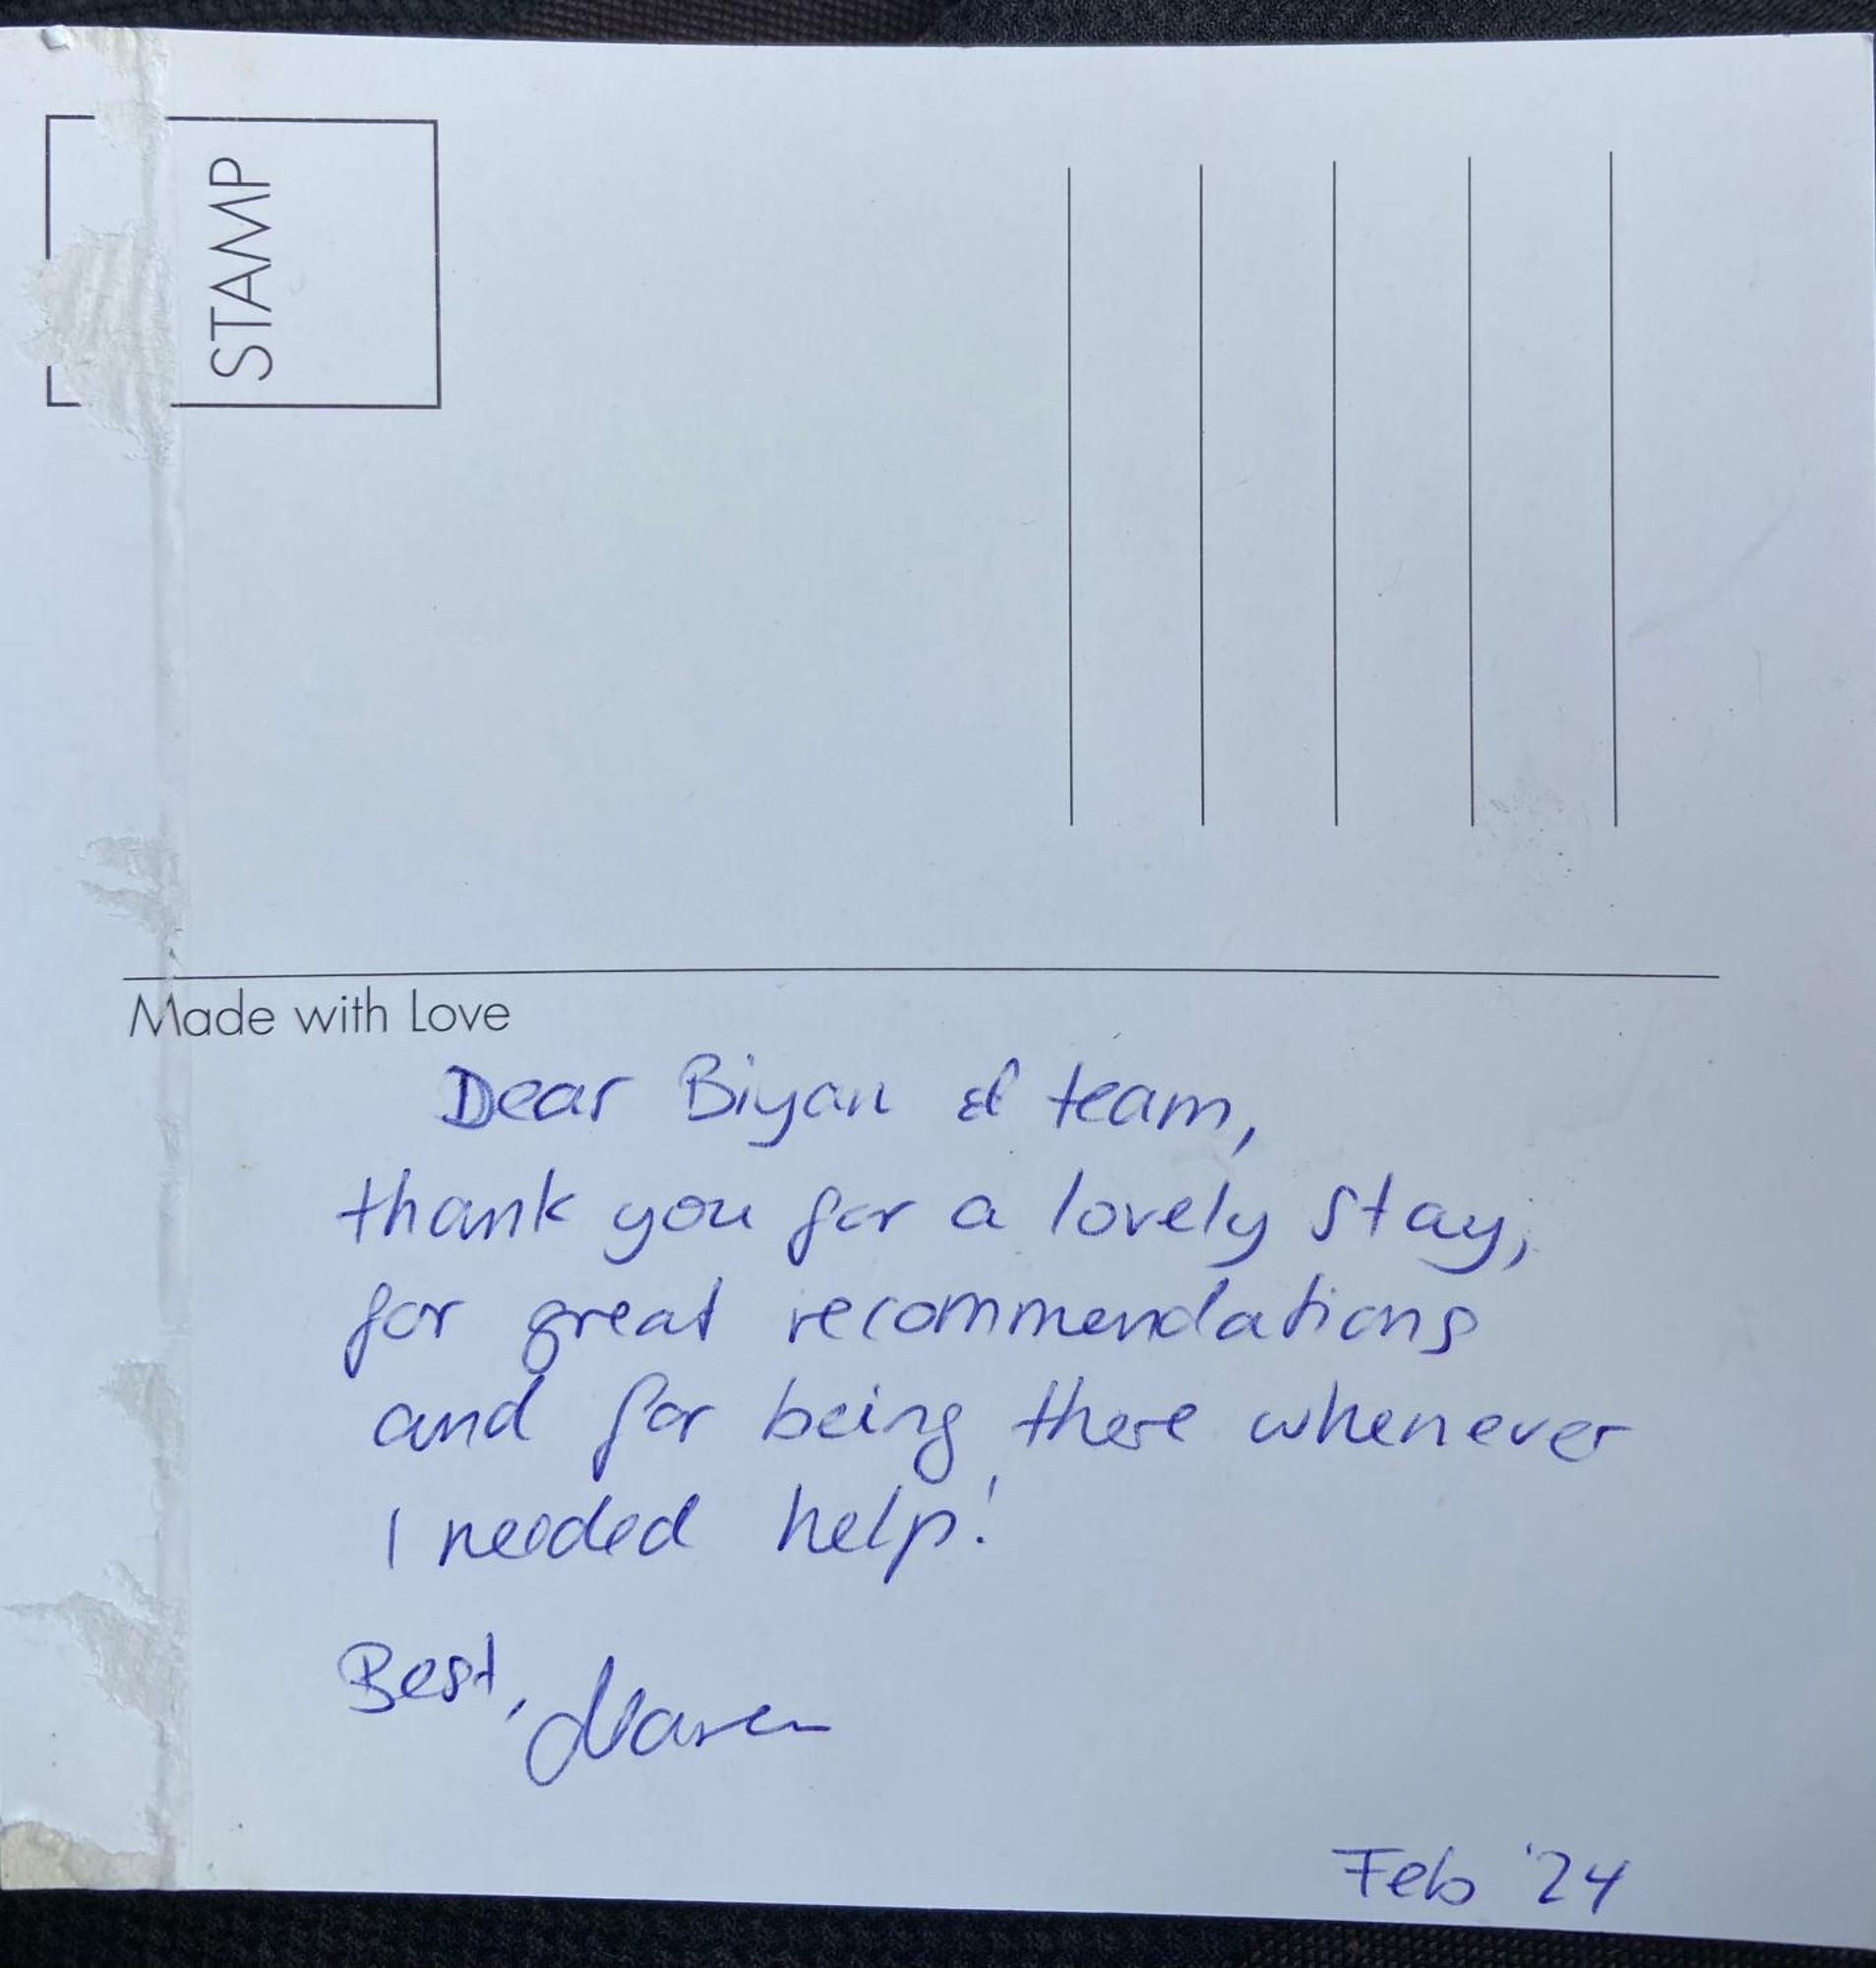 STAMP
Made with Love
Dear Biyan & team,
thank you for a lovely stay,
for great recommendations
and for being there whenever
I needed help!
Best, Maren
Feb '24